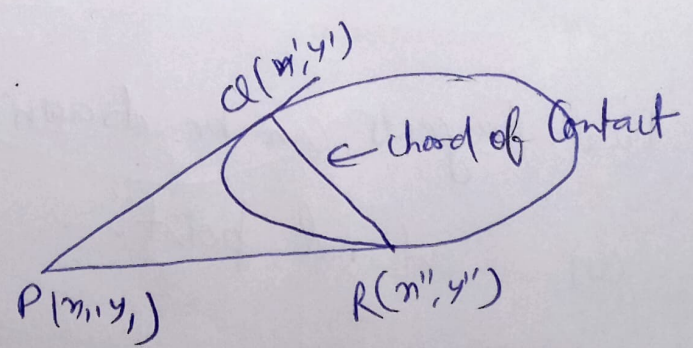 Q(x', y')
← chord of Contact
P(x₁, y₁)
R(x'', y'')